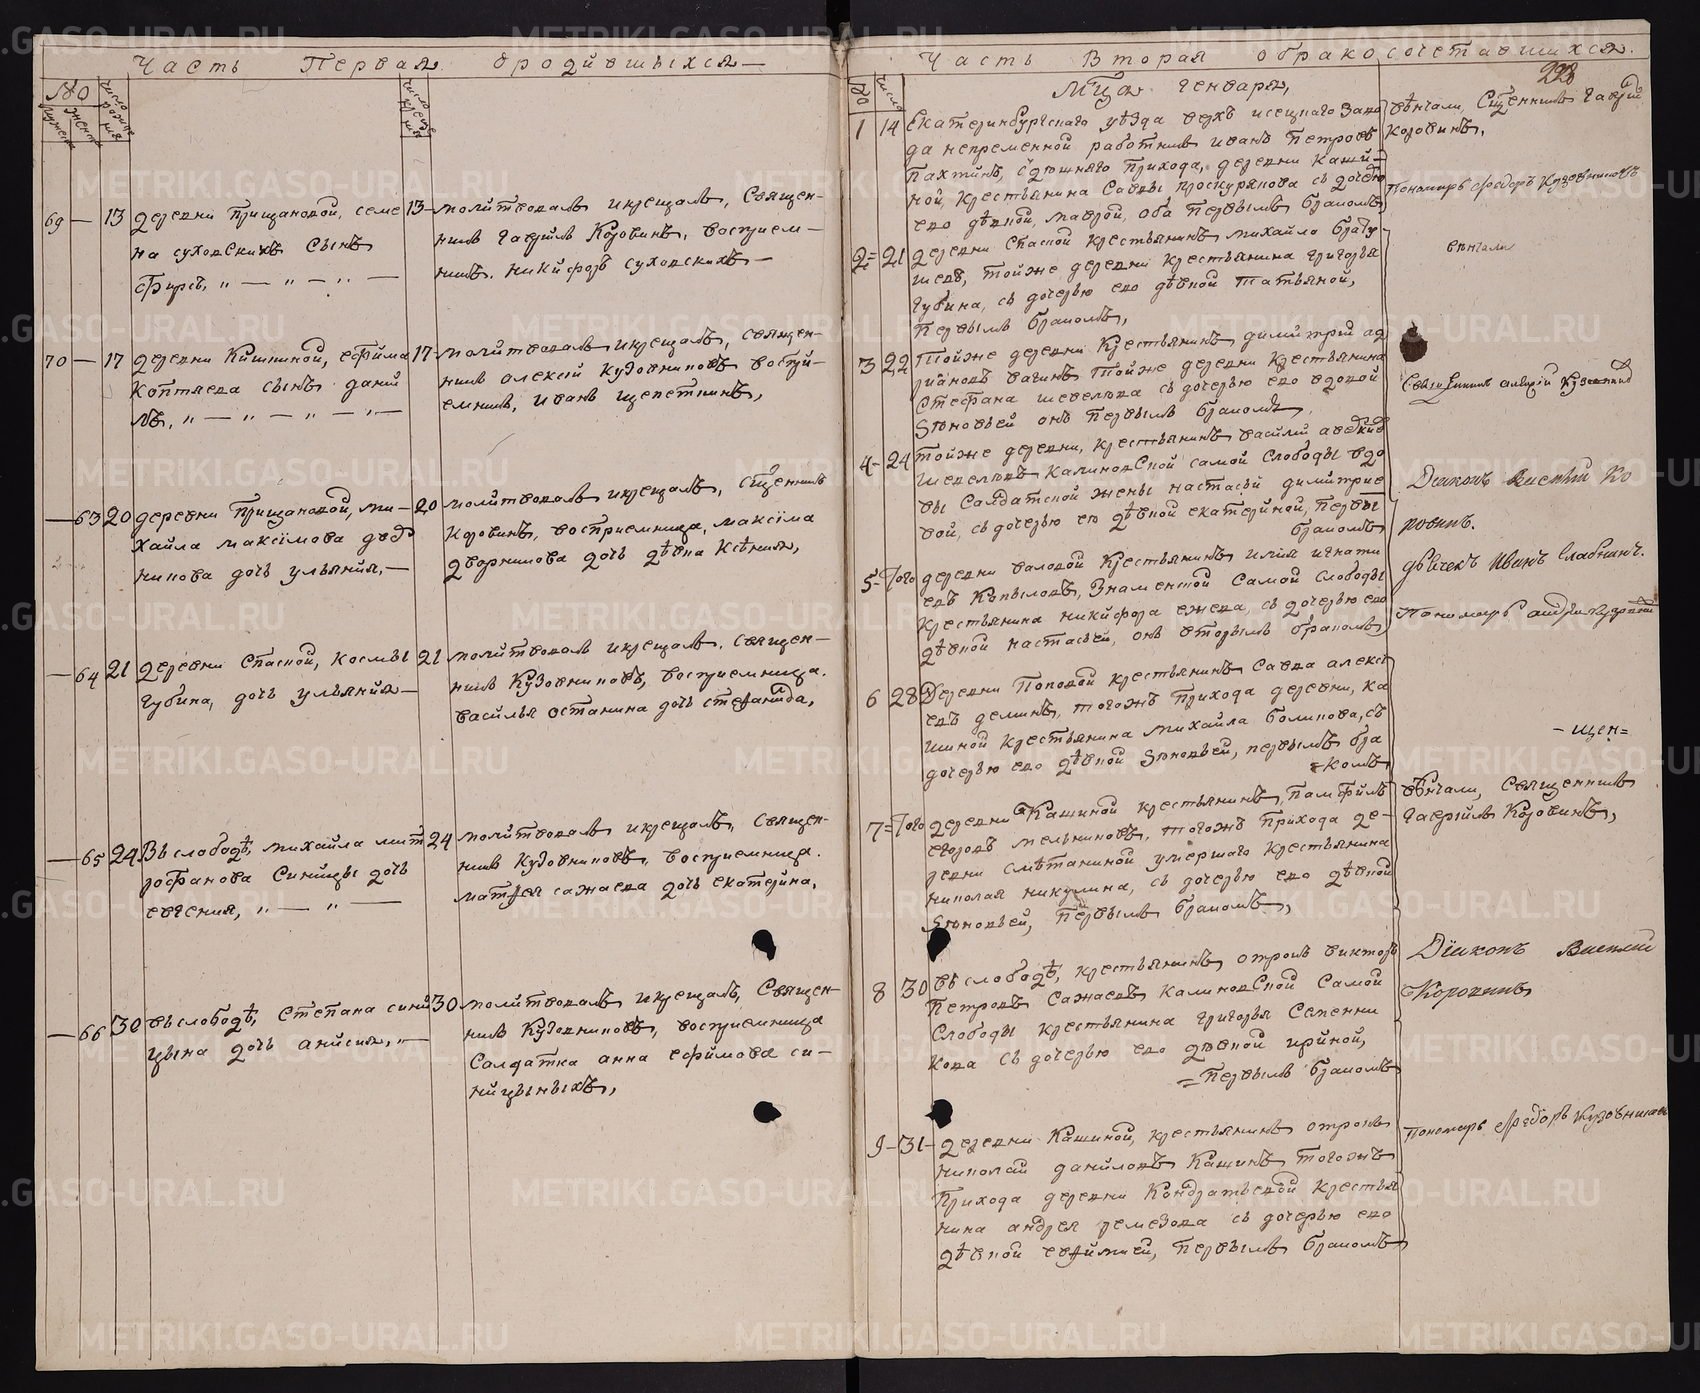 Часть Первая ородившыхся
№
мужеск
женск
число рожде ния
число креще ния
69 — 13 деревни Прищановой, Семе
на Суховскихъ сынъ
Фирсъ, „ — „ — „ —
13 молитвовалъ икрещалъ, Священ-
никъ Гаврилъ Коровинъ, восприем-
никъ, Никифоръ Суховскихъ —
70 — 17 деревни Кашиной, Ефима
Коптяева сынъ Дании
лъ, „ — „ — „ — „ —
17 молитвовалъ икрещалъ, Священ-
никъ Алексiй Кузовниковъ воспри-
емникъ, Иванъ Щепеткинъ,
— 63 20 деревни Прищановой, Ми-
хайла Максiмова
никова дочь Ульянiя, —
20 молитвовалъ икрещалъ, Сщенникъ
Коровинъ, восприемница, Максiма
Дворникова дочь дѣвка Ксѣния,
— 64 21 деревни Спаской, Космы
Губина, дочь Ульянiя —
21 молитвовалъ икрещалъ, Священ-
никъ Кузовниковъ, восприемница.
Василья Останина дочь Стефанида,
— 65 24 Въ слободѣ, Михайла Мит
рофанова Синицы дочь
Евгения, „ — „ —
24 молитвовалъ икрещалъ, Священ-
никъ Кузовниковъ, восприемница.
Матвея Сажаева дочь Екатерина,
— 66 30 въ слободѣ, Степана Сини
цына дочь Анисия, „ —
30 молитвовалъ икрещалъ, Священ-
никъ Кузовниковъ, восприемница
Салдатка Анна Ефимова Си-
ницыныхъ,
Часть Вторая обракосочетавшихся.
228
№
число
Мца генваря,
1 14 Екатеринбургскаго уѣзда верхъ исецкаго заво
да непременной работникъ Иванъ Петровъ
Пахтинъ, сдѣшняго прихода, деревни Каши-
ной, крестьянина Саввы Проскурякова съ дочерью
ево дѣвкой, Маврой, оба первымъ бракомъ,
вѣнчали, Сщенникъ Гаврiйлъ
Коровинъ,
Пономарь Федоръ Кузовниковъ
2 = 21 деревни Спаской крестьянинъ Михайло Брату
шевъ, тойже деревни крестьянина Григорья
Губина, съ дочерью ево дѣвкой Татьяной,
первымъ бракомъ,
вѣнчали
3 22 Тойже деревни крестьянинъ Димитрий Ад
рияновъ Вагинъ тойже деревни крестьянина
Стефана Шевелева съ дочерью ево вдовой
Зѣновьей онъ первымъ бракомъ,
Священникъ Алексiй Кузовников
4 - 24 тойже деревни, крестьянинъ Василий Авдѣив
Шевелевъ Калиновской самой слободы вдо
вы Салдатской жены Настасьи Димитрие
вой, съ дочерью ею дѣвкой Екатериной, первы
бракомъ
Дiаконъ Василiй Ко
ровинъ.
5 - Того деревни Валовой крестьянинъ Илия Игнати
евъ Копыловъ, Знаменской самой слободы
крестьянина Никифора Ежева, съ дочерью ево
дѣвкой Настасьей, онъ вторымъ бракомъ
дьячекъ Иванъ Слабнинъ.
Пономарь Андрей
6 28 Деревни Поповой крестьянинъ Савва Алексi
евъ Деминъ, тогожъ прихода деревни, Ка
шиной крестьянина Михайла Боликова, съ
дочерью ево дѣвкой Зѣновьей, первымъ бра
= комъ
- щен =
7 = Того деревни Кашиной крестьянинъ, Памфилъ
Егоровъ Мельниковъ, тогожъ прихода де-
ревни Смѣтаниной умершаго крестьянина
Николая Никулина, съ дочерью ево дѣвкой
Зѣновьей, первымъ бракомъ,
вѣнчали, Священникъ
Гаврiйлъ Коровинъ,
8 30 въ слободѣ, крестьянинъ, отрокъ Викторъ
Петровъ Сажаевъ Калиновской самой
слободы крестьянина Григорья Семенни
кова съ дочерью ево дѣвкой Ириной,
= первымъ бракомъ
Дiаконъ Василий
Коровинъ
9 - 31 - деревни Кашиной, крестьянинъ отрокъ
Николай Даниловъ Кашинъ тогожъ
прихода деревни Кондратьевой крестья
нина Андрея Ремезова съ дочерью ево
дѣвкой Евфимией, первымъ бракомъ
Пономарь Федоръ Кузовниковъ